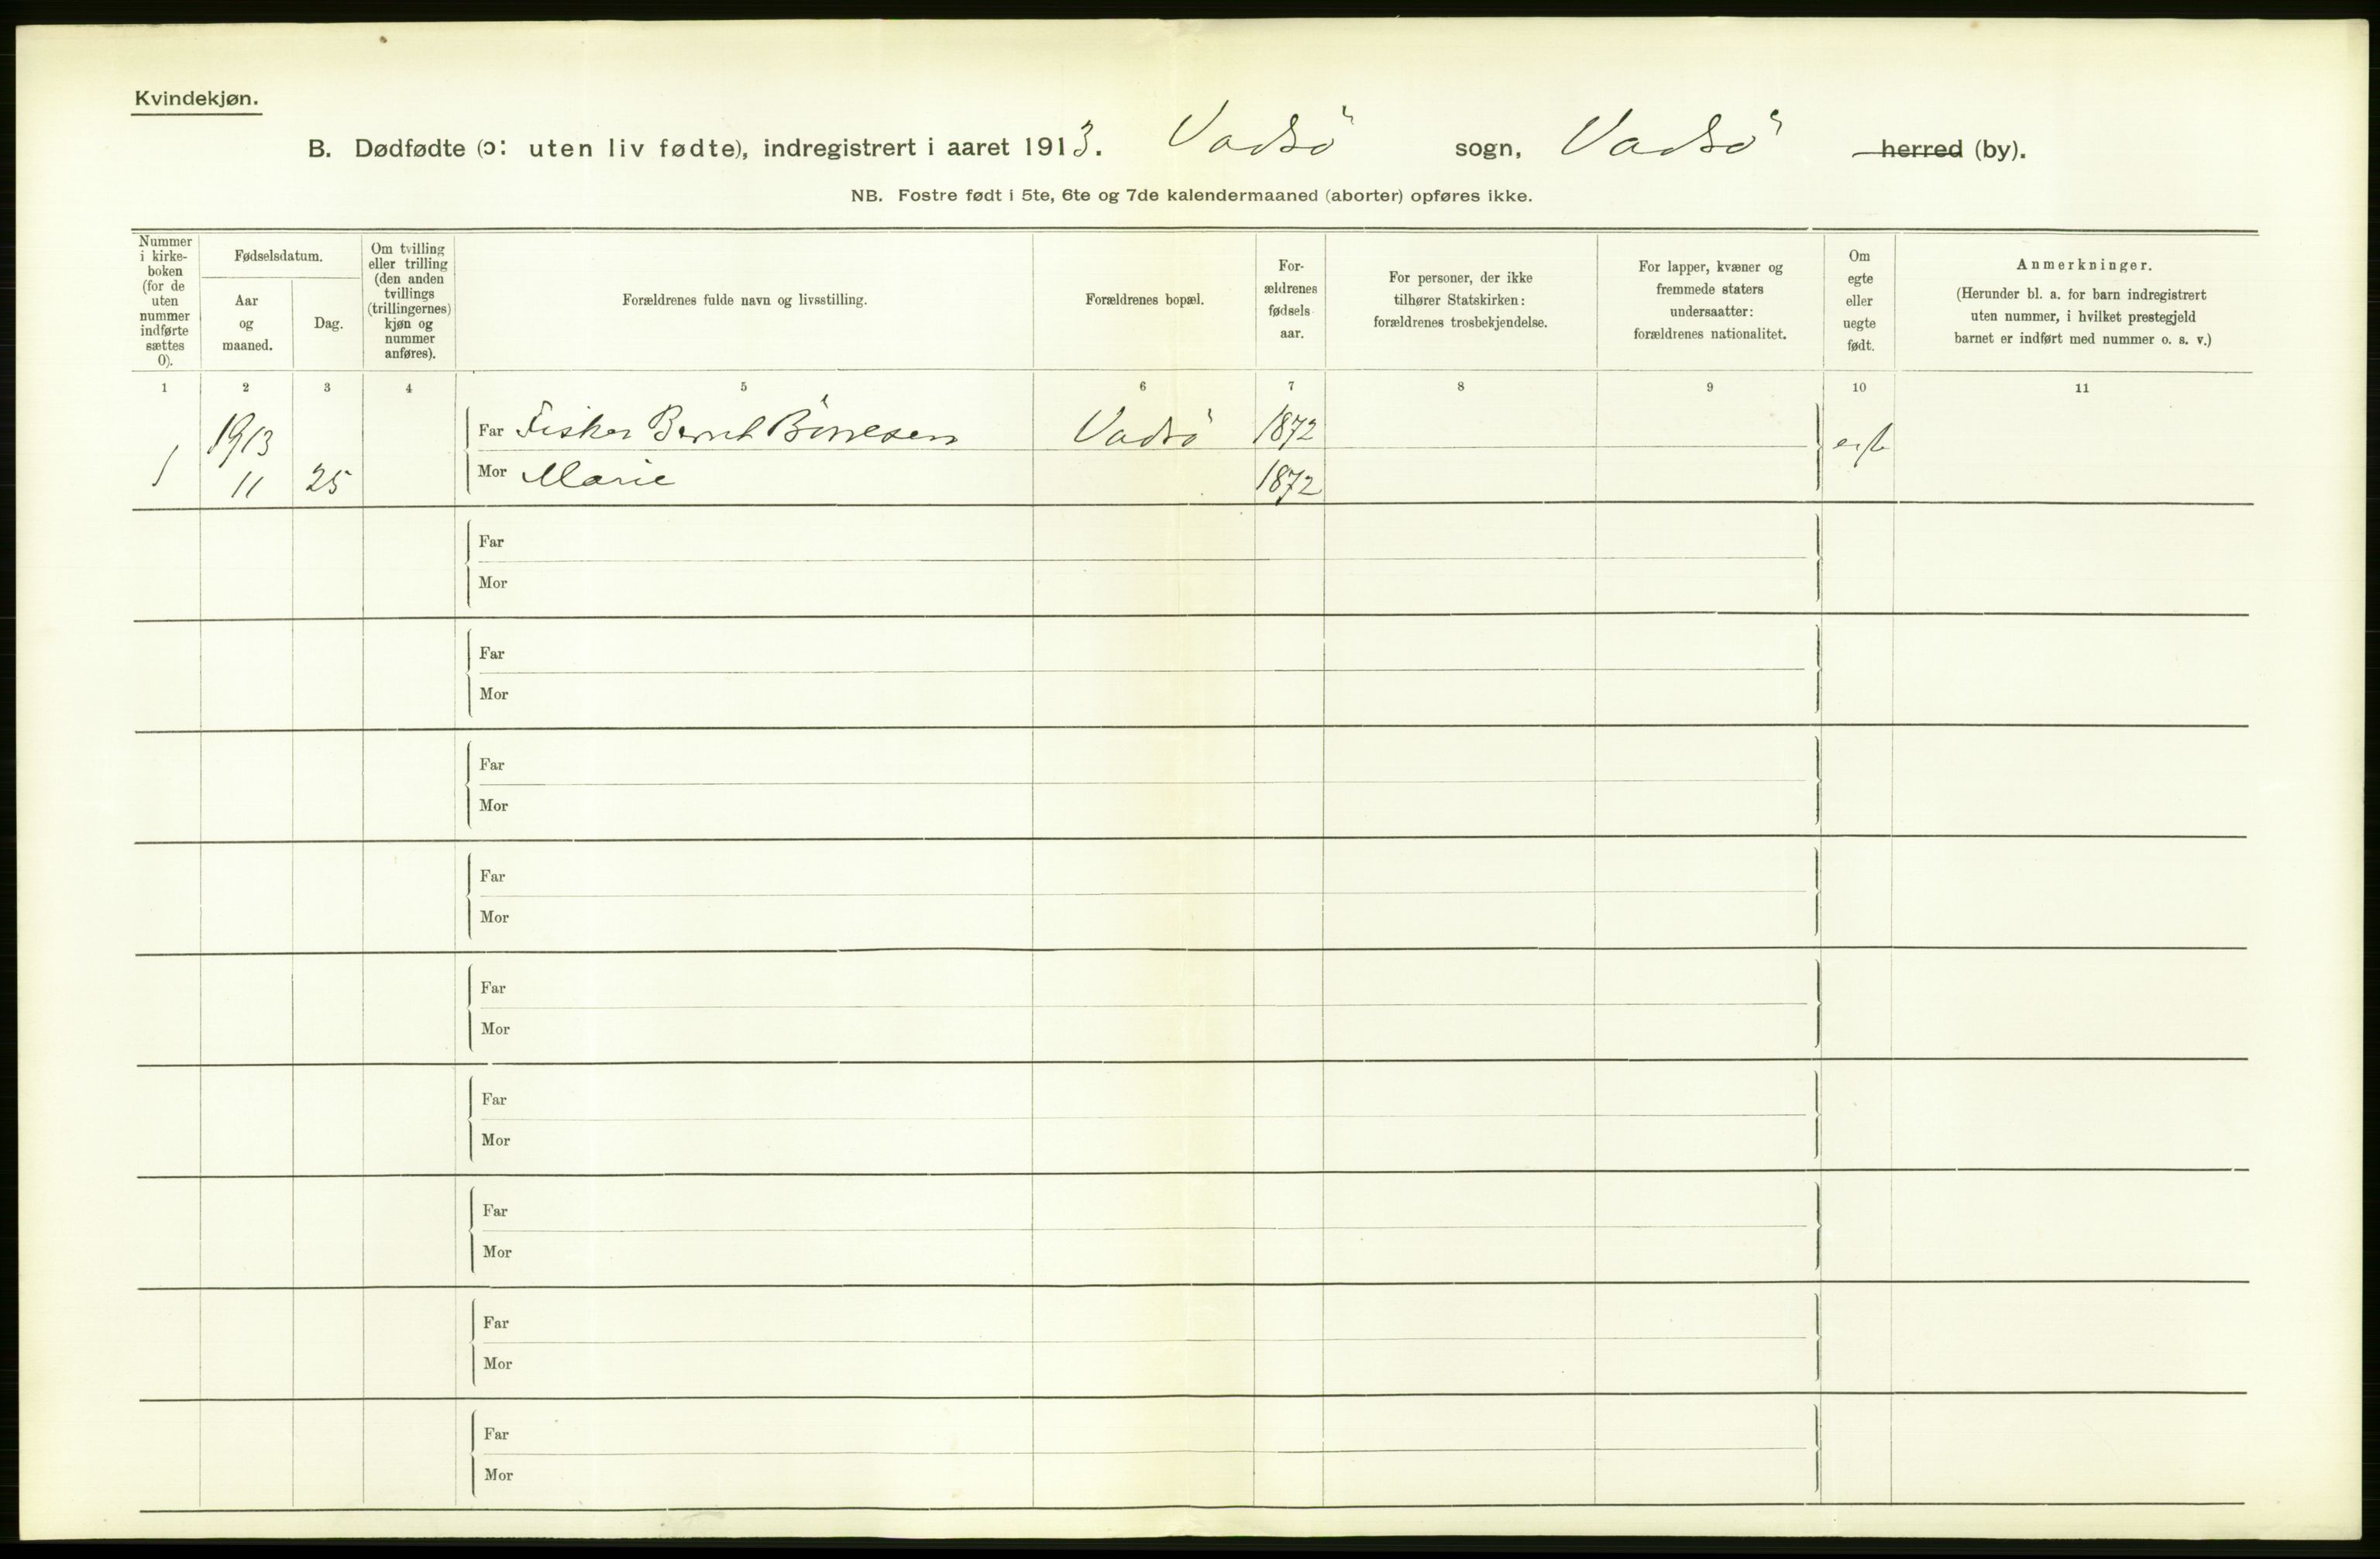 Kvindekjøn.
B. Dødfødte (ɔ: uten liv fødte), indregistrert i aaret 1913. Vadsö sogn, Vadsö herred (by).
NB. Fostre født i 5te, 6te og 7de kalendermaaned (aborter) opføres ikke.
Nummer
i kirke-
boken
(for de
uten
nummer
indførte
sættes
0).
Fødselsdatum.
Aar
og
maaned.
Dag.
Om tvilling
eller trilling
(den anden
tvillings
(trillingernes)
kjøn og
nummer
anføres).
Forældrenes fulde navn og livsstilling.
Forældrenes bopæl.
For-
ældrenes
fødsels-
aar.
For personer, der ikke
tilhører Statskirken:
forældrenes trosbekjendelse.
For lapper, kvæner og
fremmede staters
undersaatter:
forældrenes nationalitet.
Om
egte
eller
uegte
født.
Anmerkninger.
(Herunder bl. a. for barn indregistrert
uten nummer, i hvilket prestegjeld
barnet er indført med nummer o. s. v.)
1 2 3 4 5 6 7 8 9 10 11
1913 Far Fisker Bernt Vadsö 1872 egte
1 11 25 Mor Marie 1872
Far
Mor
Far
Mor
Far
Mor
Far
Mor
Far
Mor
Far
Mor
Far
Mor
Far
Mor
Far
Mor